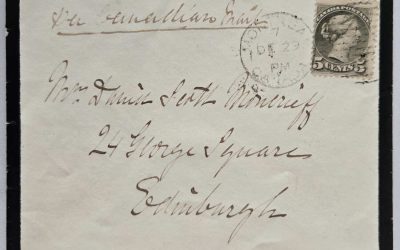 Per Canadian Mail
7
DE 29
PM
CANADA POSTAGE
5 CENTS 5
Mrs David Scott Moncrieff
24 George Square
Edinburgh